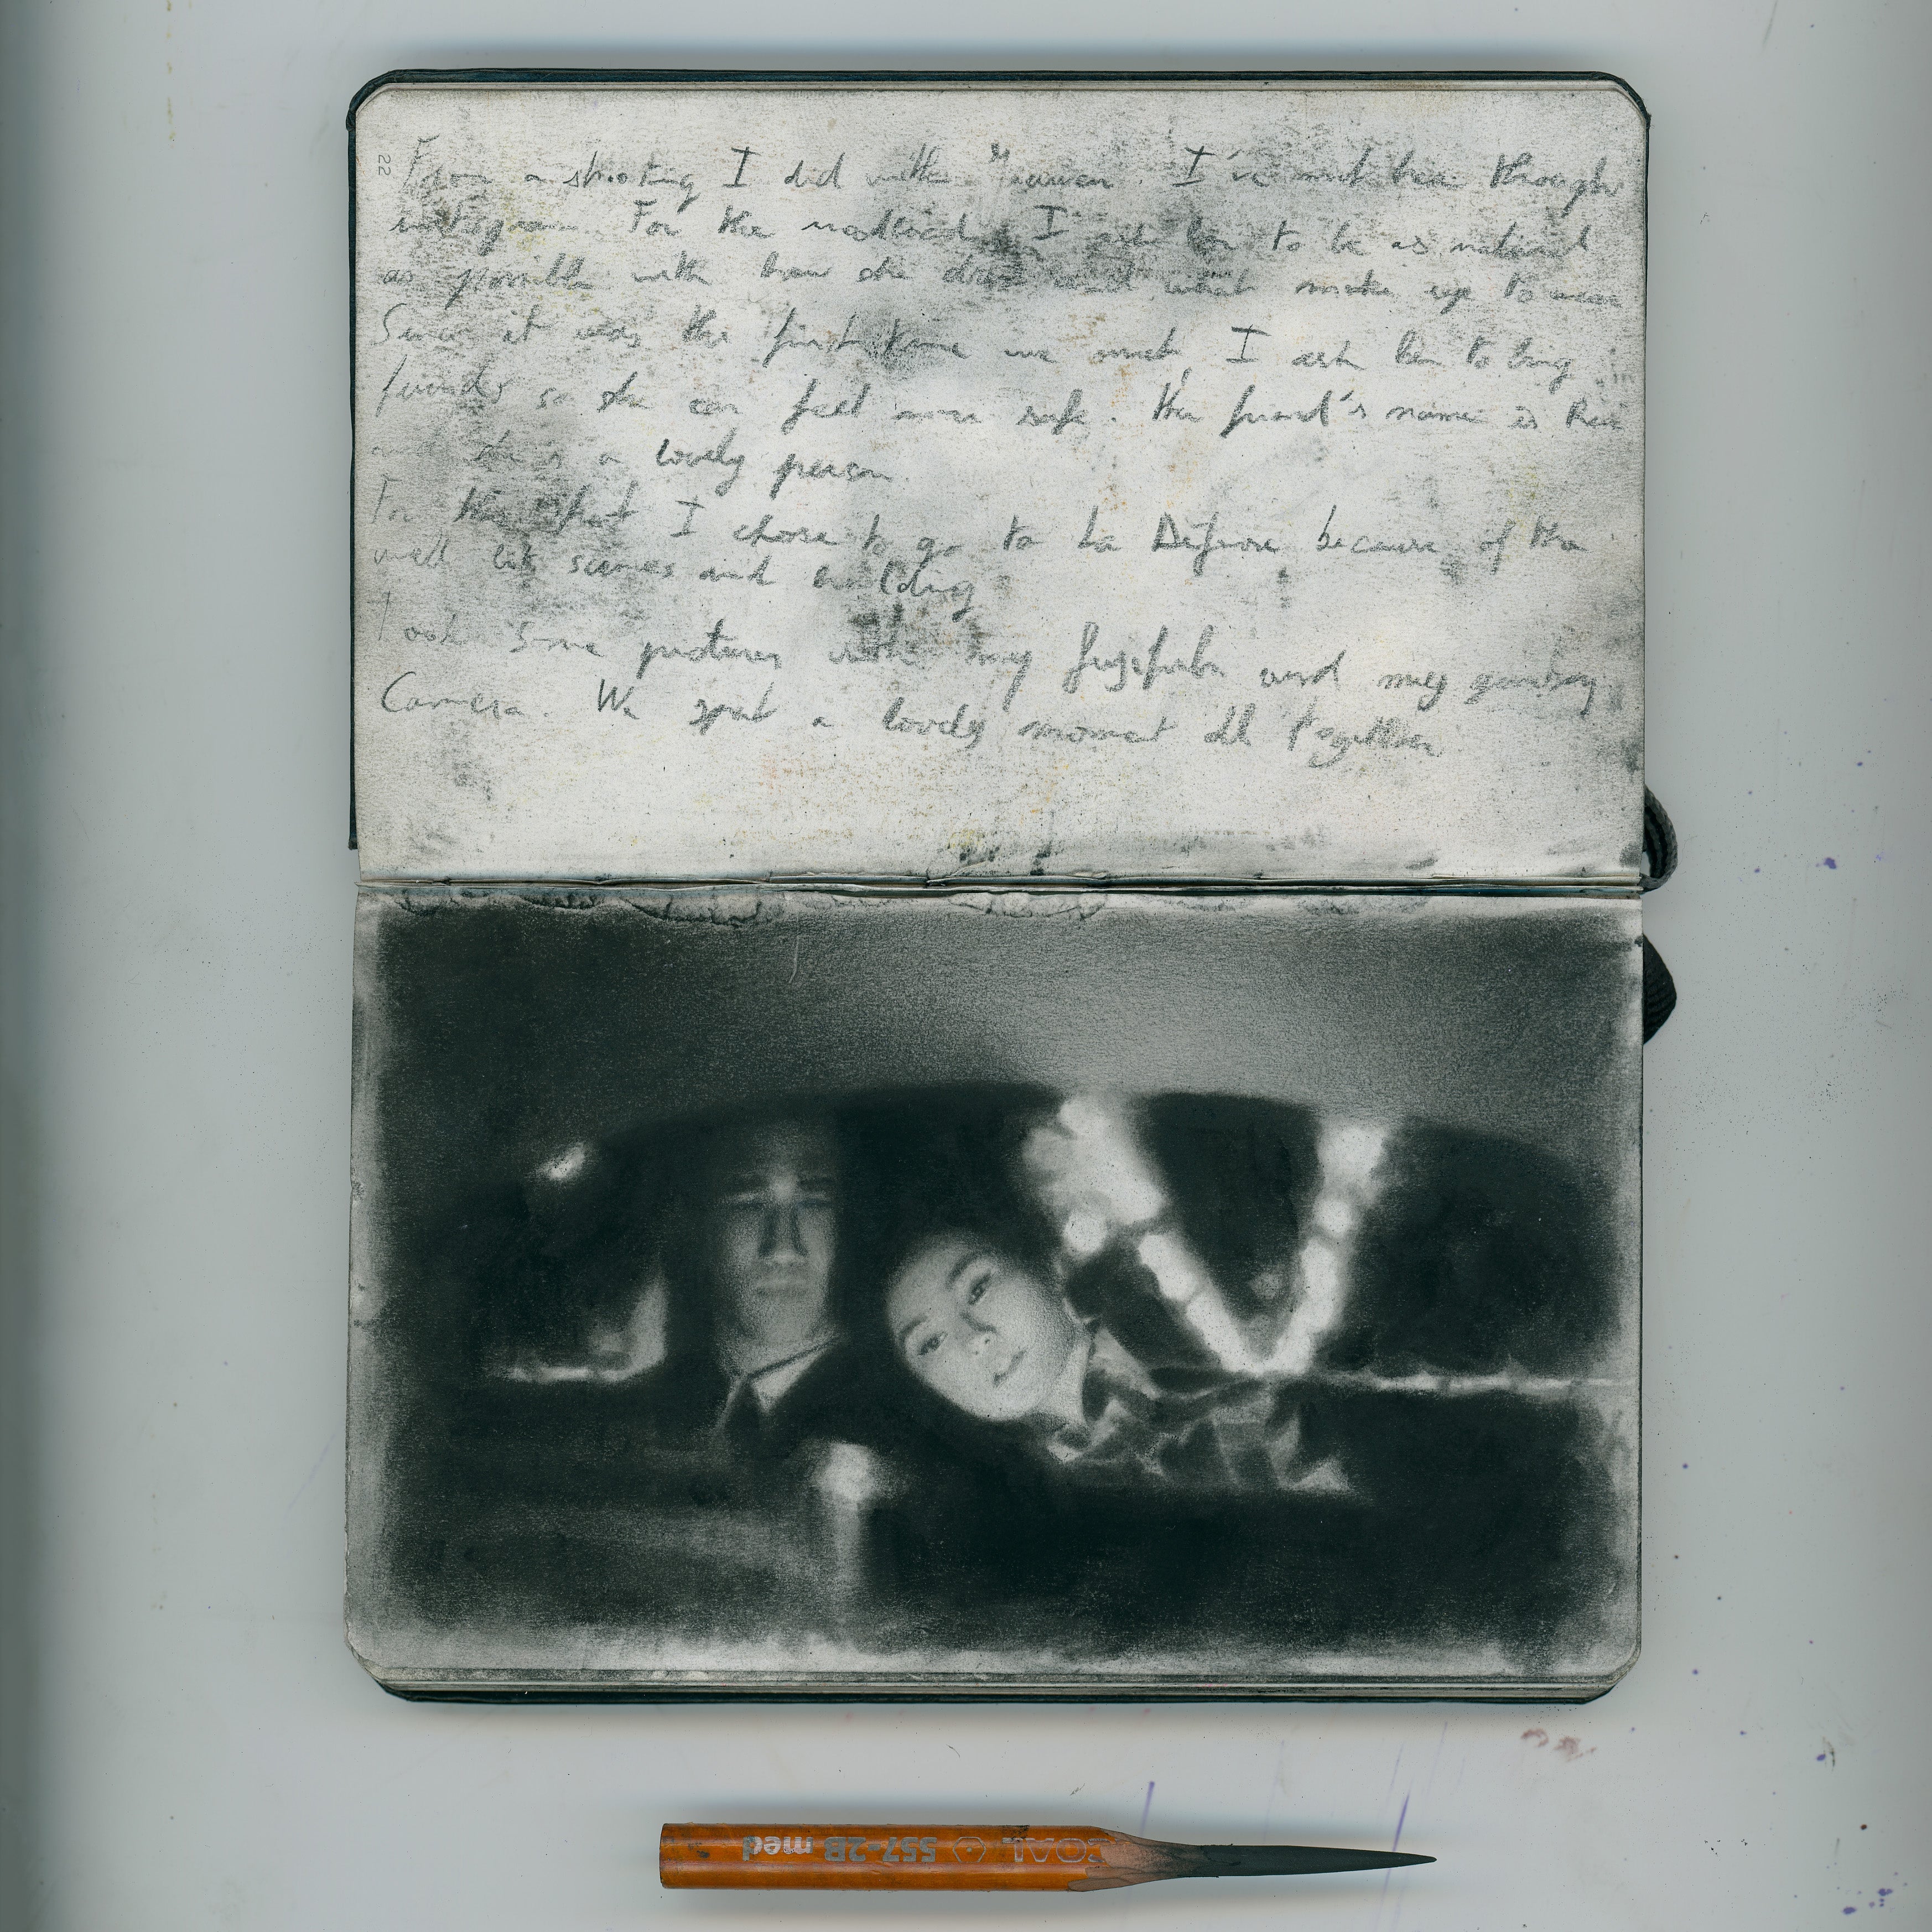 22
From a shooting I did with. I've met her through
instagram. For the I ask her to be as natural
as possible with how she dress and what make up to wear
Since it was the first time we met, I ask her to bring
friends so she can feel more safe. the friend's name is
and she is a lovely person
For the I chose to go to La Défense because of the
well lit scenes and building
Took some pictures with my fujifilm and my
Camera. We spent a lovely moment all together
COAL 557-2B med